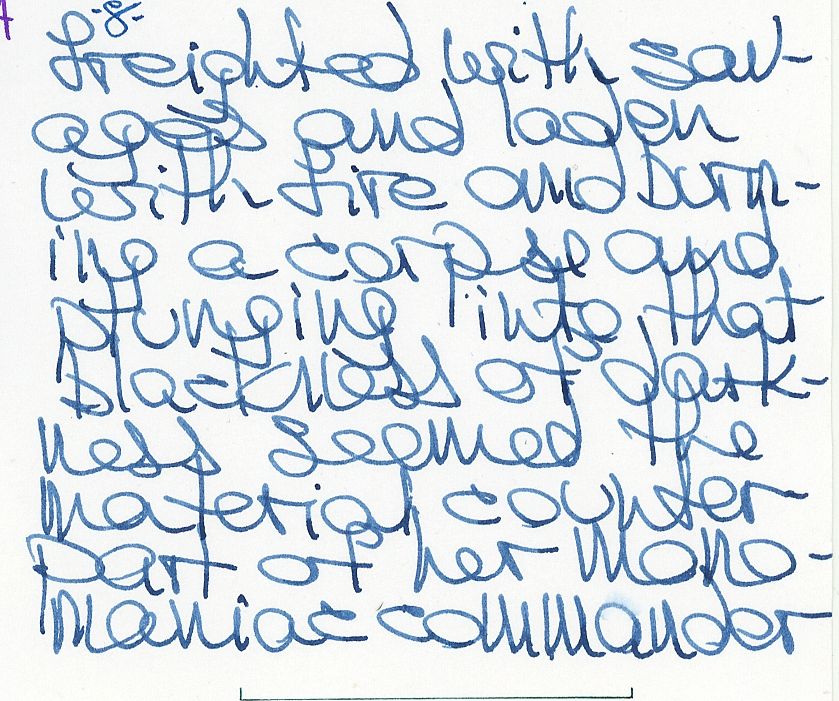 -8-
freighted with sav-
ages and laden
with fire and burn-
ing a corpse and
plunging into that
blackness of dark-
ness seemed the
material counter
part of her mono-
maniac commander